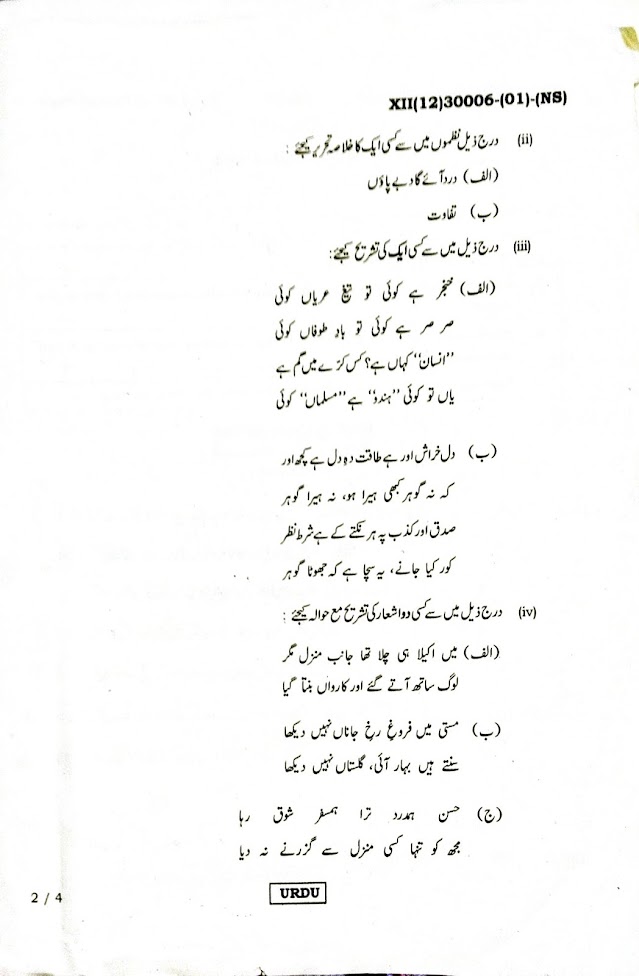 XII(12)30006-(01)-(NS)
(ii) درج ذیل نظموں میں سے کسی ایک کا خلاصہ تحریر کیجئے :
(الف) درد آئے گا دبے پاؤں
(ب) تفاوت
(iii) درج ذیل میں سے کسی ایک کی تشریح کیجئے:
(الف) خنجر ہے کوئی تو تیغِ عریاں کوئی
صر صر ہے کوئی تو بادِ طوفاں کوئی
"انسان" کہاں ہے؟ کس کرّے میں گم ہے
یاں تو کوئی "ہندوٗ" ہے "مسلماں" کوئی
(ب) دل خراش اور ہے طاقت دہِ دل ہے کچھ اور
کہ نہ گوہر کبھی ہیرا ہو، نہ ہیرا گوہر
صدق اور کذب پہ ہر نکتے کے ہے شرط نظر
کور کیا جانے، یہ سچا ہے کہ جھوٹا گوہر
(iv) درج ذیل میں سے کسی دو اشعار کی تشریح مع حوالہ کیجئے :
(الف) میں اکیلا ہی چلا تھا جانب منزل مگر
لوگ ساتھ آتے گئے اور کارواں بنتا گیا
(ب) مستی میں فروغِ رخِ جاناں نہیں دیکھا
سنتے ہیں بہار آئی، گلستاں نہیں دیکھا
(ج) حسن ہمدرد ترا ہمسفر شوق رہا
مجھ کو تنہا کسی منزل سے گزرنے نہ دیا
2 / 4
URDU